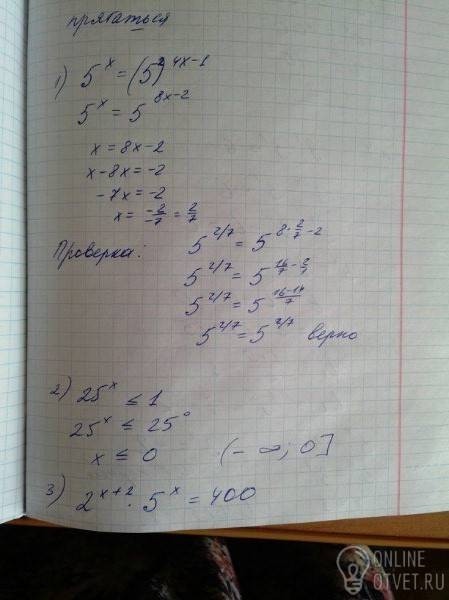 прятаться
1) 5^x = (5^2)^{4x-1}
5^x = 5^{8x-2}
x = 8x - 2
x - 8x = -2
-7x = -2
x = \frac{-2}{-7} = \frac{2}{7}
Проверка:
5^{2/7} = 5^{8·\frac{2}{7}-2}
5^{2/7} = 5^{\frac{16}{7}-\frac{2}{1}}
5^{2/7} = 5^{\frac{16-14}{7}}
5^{2/7} = 5^{2/7} верно
2) 25^x ≤ 1
25^x ≤ 25^0
x ≤ 0 (-∞; 0]
3) 2^{x+2} · 5^x = 400
ONLINE
OTVET.RU